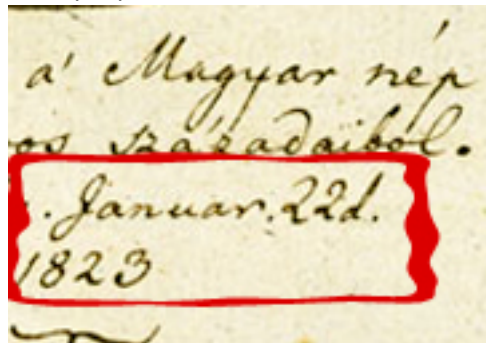 a' Magyar nép
os századaiból.
. Januar. 22d.
1823